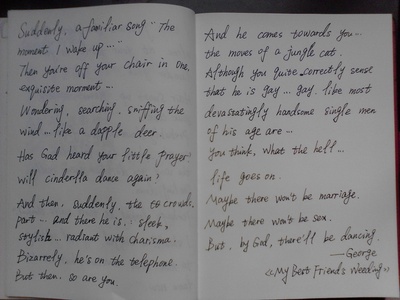 Suddenly, a familiar song " The
moment I wake up..."
Then you're off your chair in one,
exquisite moment...
Wondering, searching, sniffing the
wind... like a dapple deer.
Has God heard your little prayer
will cinderlla dance again?
And then, suddenly, the to crowds,
part... and there he is, : sleek,
stylish... radiant with charisma.
Bizarrely, he's on the telephone.
But then, so are you.
And he comes towards you...
the moves of a jungle cat.
Although you quite correctly sense
that he is gay... gay. like most
devastatingly handsome single men
of his age are...
you think, what the hell...
life goes on.
Maybe there won't be marriage.
Maybe there won't be sex.
But, by God, there'll be dancing.
—George
《My Best Friends Weeding》